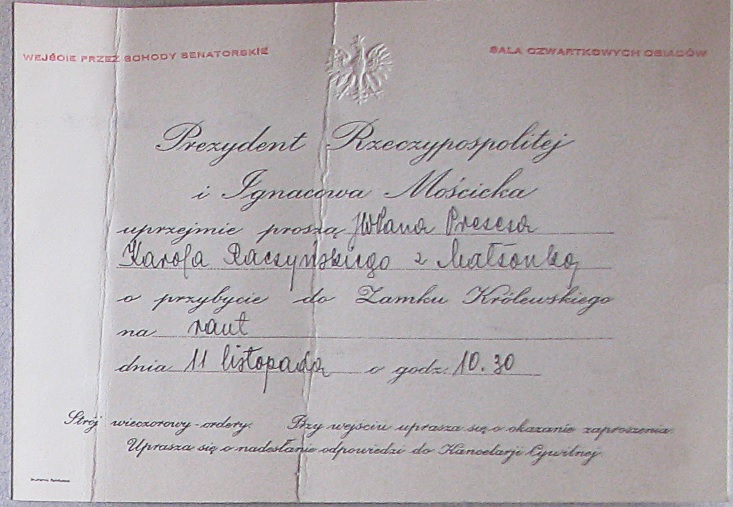 WEJŚCIE PRZEZ SCHODY SENATORSKIE
SALA CZWARTKOWYCH OBIADÓW
Prezydent Rzeczypospolitej
i Ignacowa Mościcka
uprzejmie proszą JWPana Prezesa
Karola Raczyńskiego z Małżonką
o przybycie do Zamku Królewskiego
na raut
dnia 11 listopada o godz. 10.30
Strój wieczorowy - ordery. Przy wejściu uprasza się o okazanie zaproszenia
Uprasza się o nadesłanie odpowiedzi do Kancelarji Cywilnej